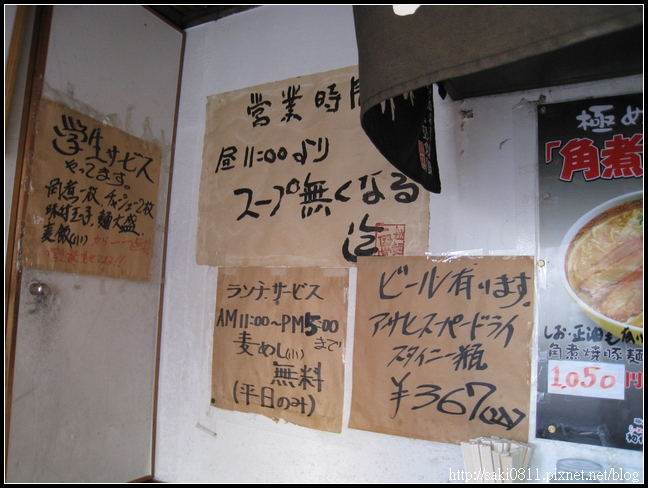 学生サービス
やってます。
角煮一枚、チャーシュー2枚
味付玉子、麺大盛、
麦飯(小)から一つ無料
営業時間
昼11:00より
スープ無くなる
迄
ランチサービス
AM11:00〜PM5:00
まで
麦めし(小)
無料
(平日のみ)
ビール有ります。
アサヒスーパードライ
スタイニー瓶
¥367
極め
「角煮
しお・正油も
角煮焼豚麺
1,050円
http://saki0811.pixnet.net/blog